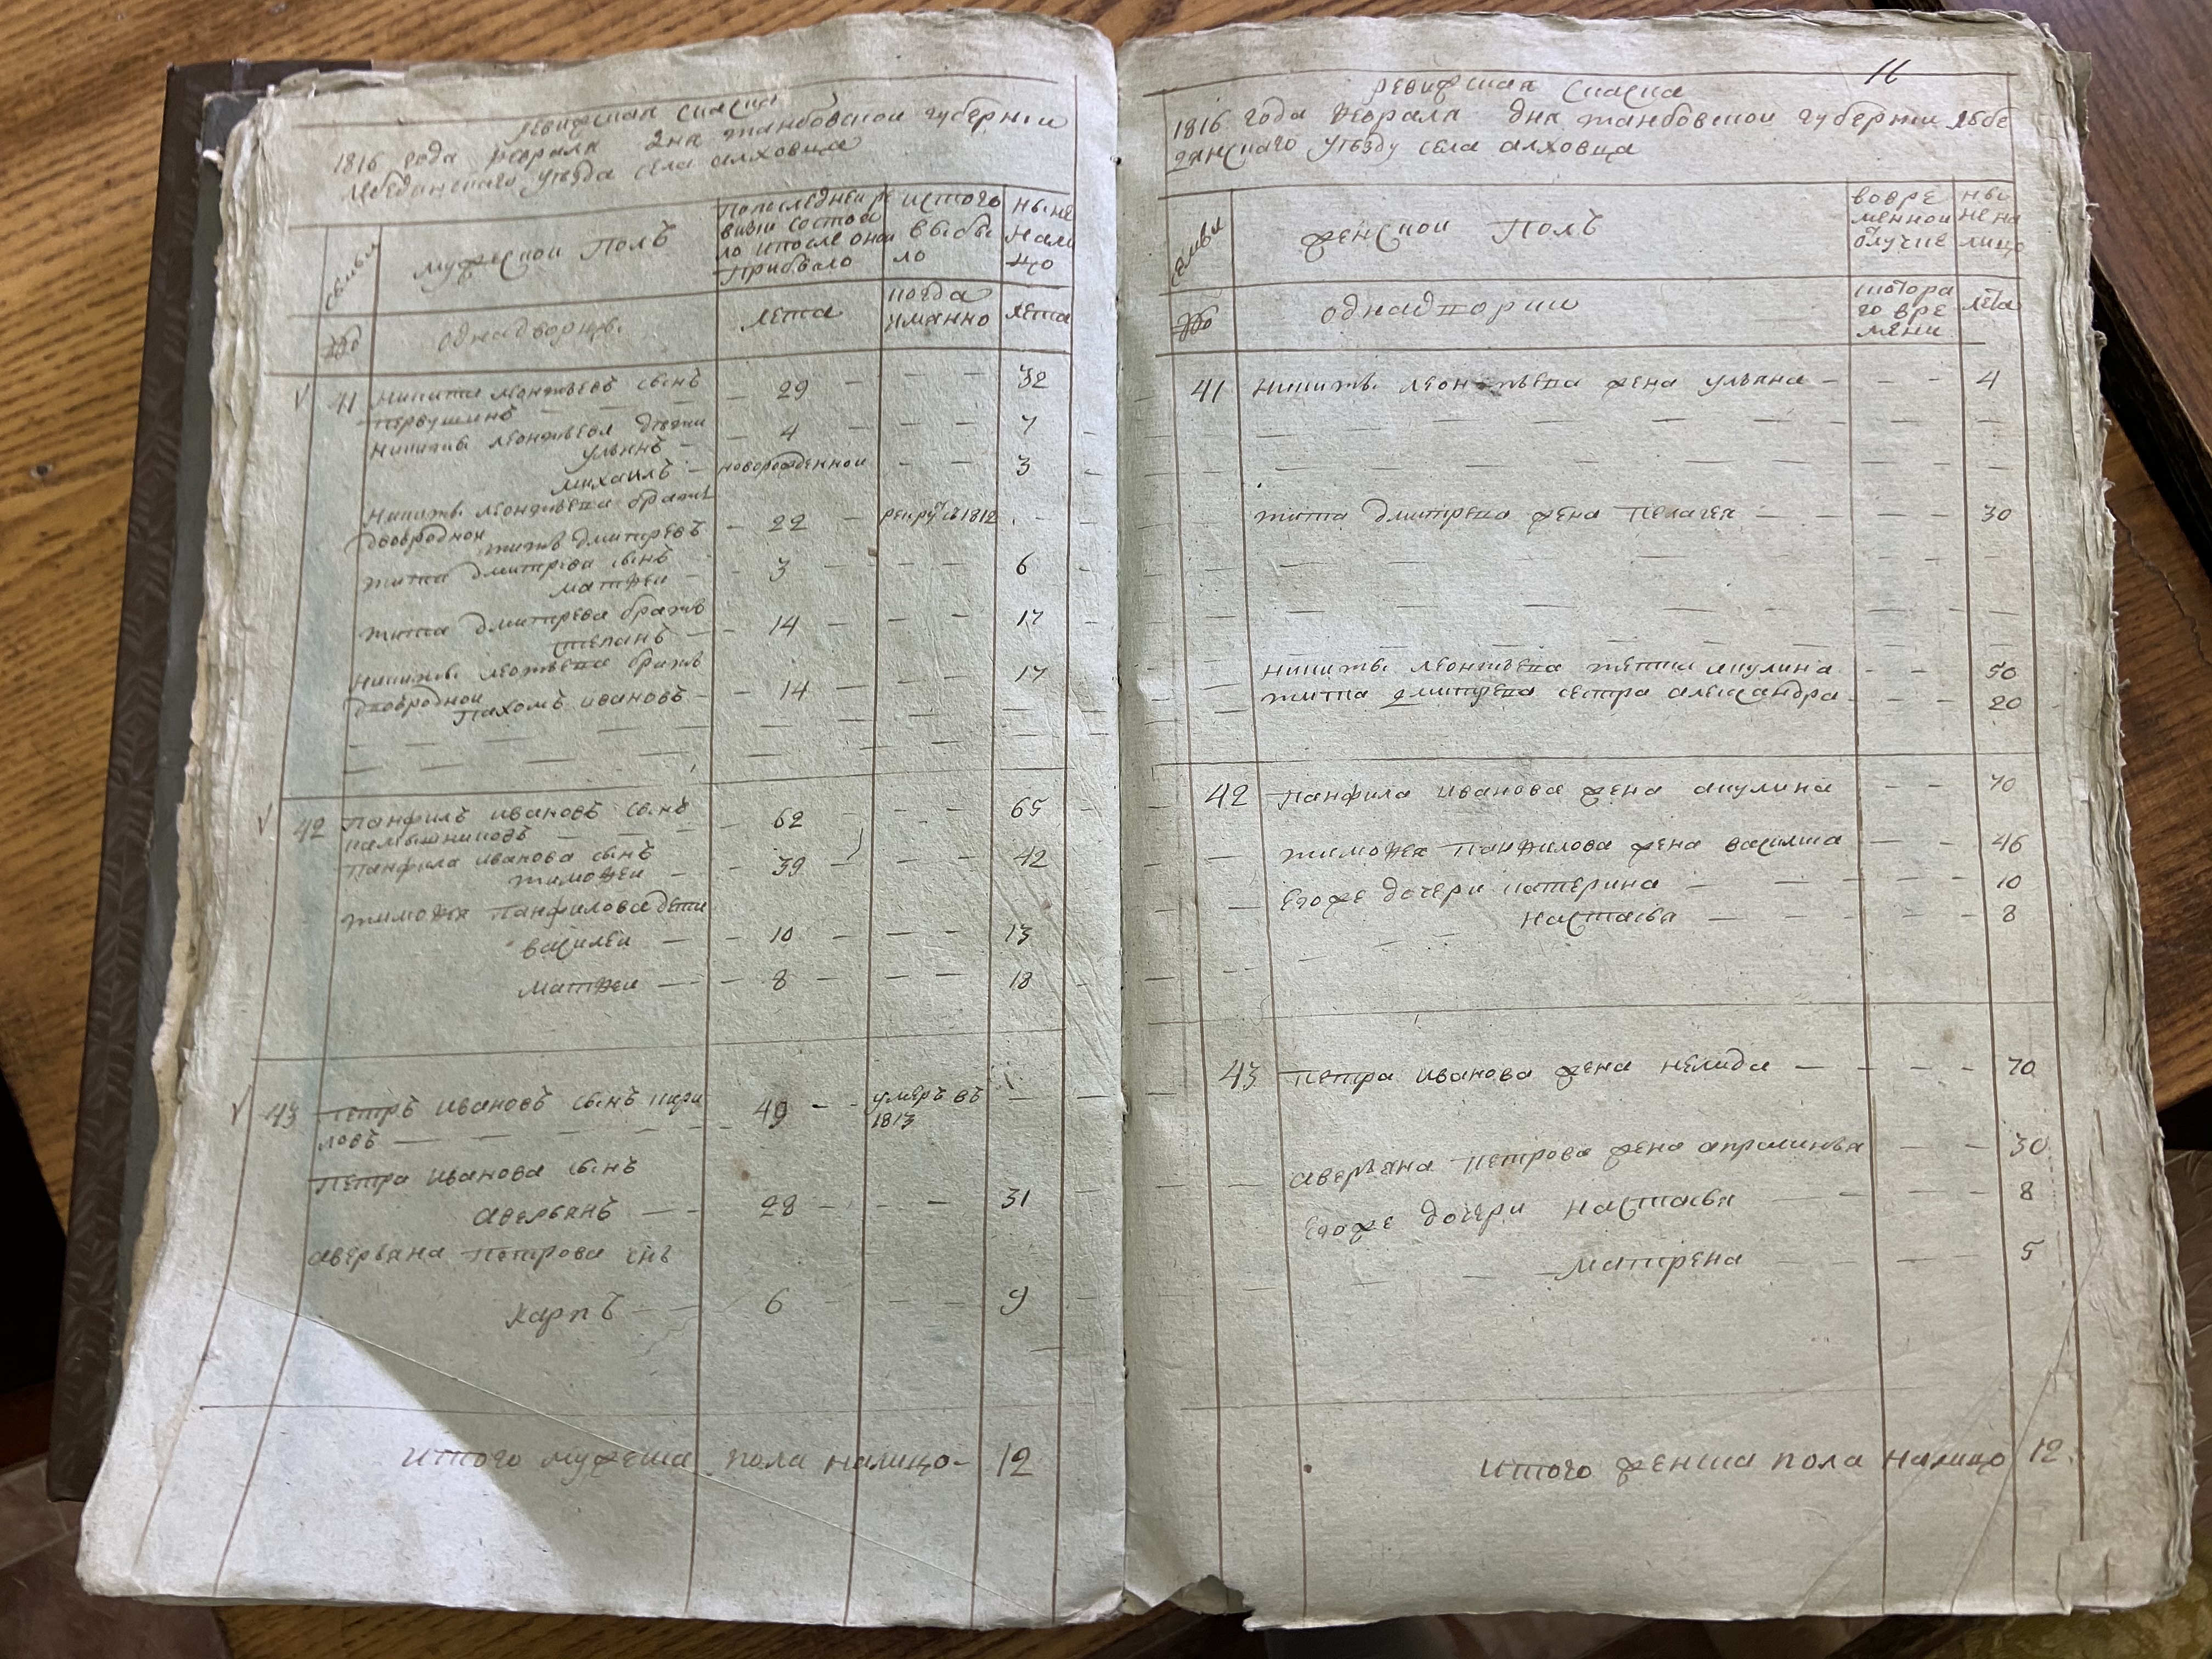 ревижская скаска
1816 года февраля дня танбовской губернии
лебедянскаго уезда села алховца
семьи
мужеской полъ
попоследней ре
визии состоя
ло ипосле оной
прибыло
истого
выбы
ло
ныне
нали
цо
№
однадворцы.
лета
когда
имянно
лета
41 никита леонтьевъ сынъ
первушинъ — 29 — — — 32
никиты леонтьева дети
ульянъ — 4 — — — 7
михаилъ — новорожденной — — 3
никиты леонтьева братъ
двоюродной титъ дмитревъ — 22 — рекрут в 1812 . - -
тита дмитрева сынъ
матфеи — 3 — — — 6
тита дмитрева братъ
степанъ — 14 — — — 17
никиты леонтьева братъ
двоюродной
пахомъ ивановъ — 14 — — — 17
42 панфилъ ивановъ сынъ
камышниковъ — 62 — — — 65
панфила иванова сынъ
тимофеи — 39 — — — 42
тимофея панфилова дети
василеи — 10 — — — 13
матфеи — 8 — — — 18
43 петръ ивановъ сынъ кири
ловъ — 49 - - умеръ въ
1813
петра иванова сынъ
аверьянъ — 28 — — — 31
аверьяна петрова снъ
карпъ — 6 — — — 9
итого мужеска пола налицо - 12
11
ревижская скаска
1816 года февраля дня танбовской губернии лебе
дянскаго уезду села алховца
семьи
женской полъ
вовре
менной
отлучке
ны
не на
лицо
№
однадворки
скотора
го вре
мяни
лета
41 никиты леонтьева жена ульяна — — — 4
тита дмитрева жена пелагея — — — 30
никиты леонтьева тетка акулина — — 50
тита дмитрева сестра александра — — 20
42 панфила иванова жена акулина — — 70
тимофея панфилова жена василиса — — 46
егоже дочери катерина — — — 10
настасья — — — 8
43 петра иванова жена нелида — — — 70
аверьяна петрова жена апраксинья — — 30
егоже дочери настасья — — 8
матрена — — 5
итого женска пола налицо 12